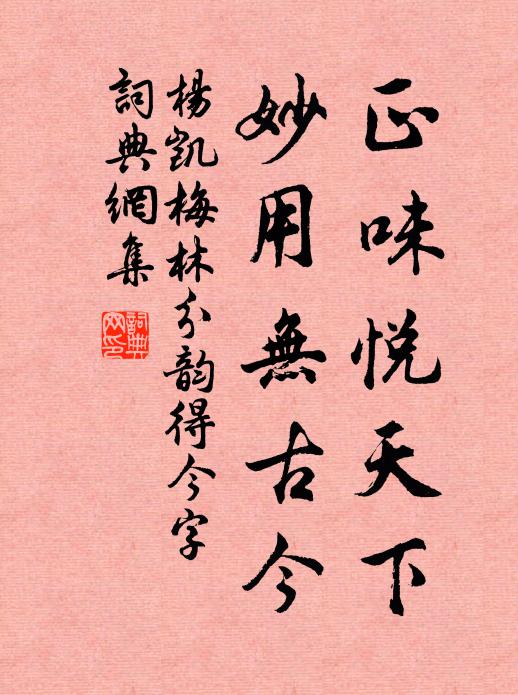 正味悦天下
妙用無古今
楊凱梅林分韵得今字
詞典網集
詞典網印